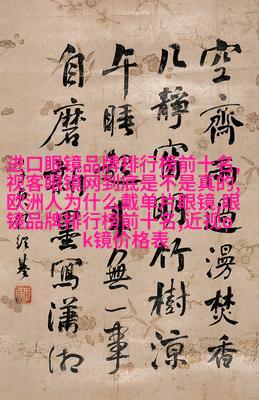 进口眼镜品牌排行榜前十名,
视客眼镜网到底是不是真的,
欧洲人为什么戴单片眼镜,眼
镜品牌排行榜前十名,近视o
k镜价格表
空齋漫焚香
几靜窗竹樹涼
午睡無一事
自磨墨寫瀟湘